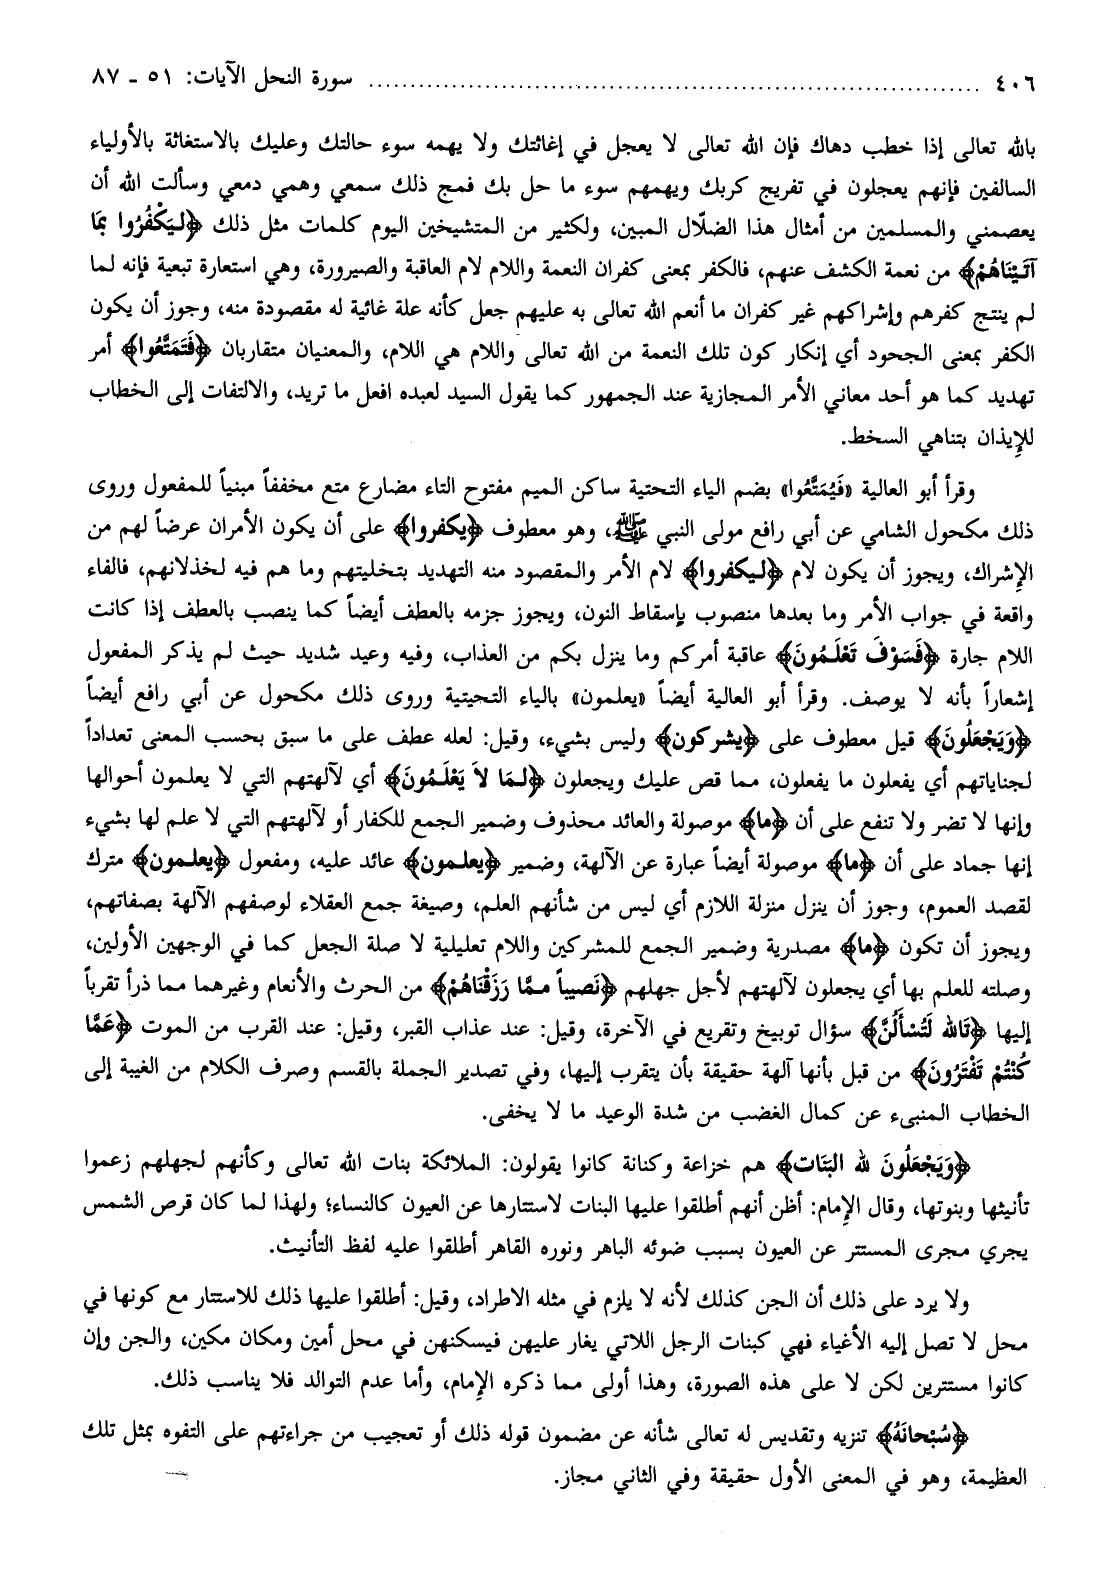 ٤٠٦ ................ سورة النحل الآيات: ٥١ - ٨٧
بالله تعالى إذا خطب دهاك فإن الله تعالى لا يعجل في إغاثتك ولا يهمه سوء حالتك وعليك بالاستغاثة بالأولياء
السالفين فإنهم يعجلون في تفريج كربك ويهمهم سوء ما حل بك فمج ذلك سمعي وهمي دمعي وسألت الله أن
يعصمني والمسلمين من أمثال هذا الضلّال المبين، ولكثير من المتشيخين اليوم كلمات مثل ذلك ﴿لِيَكْفُرُوا بِمَا
آتَيْنَاهُمْ﴾ من نعمة الكشف عنهم، فالكفر بمعنى كفران النعمة واللام لام العاقبة والصيرورة، وهي استعارة تبعية فإنه لما
لم ينتج كفرهم وإشراكهم غير كفران ما أنعم الله تعالى به عليهم جعل كأنه علة غائية له مقصودة منه، وجوز أن يكون
الكفر بمعنى الجحود أي إنكار كون تلك النعمة من الله تعالى واللام هي اللام، والمعنيان متقاربان ﴿فَتَمَتَّعُوا﴾ أمر
تهديد كما هو أحد معاني الأمر المجازية عند الجمهور كما يقول السيد لعبده افعل ما تريد، والالتفات إلى الخطاب
للإيذان بتناهي السخط.
وقرأ أبو العالية «فَيُمَتَّعُوا» بضم الياء التحتية ساكن الميم مفتوح التاء مضارع متع مخففاً مبنياً للمفعول وروى
ذلك مكحول الشامي عن أبي رافع مولى النبي ﷺ، وهو معطوف ﴿يكفروا﴾ على أن يكون الأمران عرضاً لهم من
الإشراك، ويجوز أن يكون لام ﴿ليكفروا﴾ لام الأمر والمقصود منه التهديد بتخليتهم وما هم فيه لخذلانهم، فالفاء
واقعة في جواب الأمر وما بعدها منصوب بإسقاط النون، ويجوز جزمه بالعطف أيضاً كما ينصب بالعطف إذا كانت
اللام جارة ﴿فَسَوْفَ تَعْلَمُونَ﴾ عاقبة أمركم وما ينزل بكم من العذاب، وفيه وعيد شديد حيث لم يذكر المفعول
إشعاراً بأنه لا يوصف. وقرأ أبو العالية أيضاً «يعلمون» بالياء التحيتية وروى ذلك مكحول عن أبي رافع أيضاً
﴿وَيَجْعَلُونَ﴾ قيل معطوف على ﴿يشركون﴾ وليس بشيء، وقيل: لعله عطف على ما سبق بحسب المعنى تعداداً
لجناياتهم أي يفعلون ما يفعلون، مما قص عليك ويجعلون ﴿لِمَا لاَ يَعْلَمُونَ﴾ أي لآلهتهم التي لا يعلمون أحوالها
وإنها لا تضر ولا تنفع على أن ﴿ما﴾ موصولة والعائد محذوف وضمير الجمع للكفار أو لآلهتهم التي لا علم لها بشيء
إنها جماد على أن ﴿ما﴾ موصولة أيضاً عبارة عن الآلهة، وضمير ﴿يعلمون﴾ عائد عليه، ومفعول ﴿يعلمون﴾ مترك
لقصد العموم، وجوز أن ينزل منزلة اللازم أي ليس من شأنهم العلم، وصيغة جمع العقلاء لوصفهم الآلهة بصفاتهم،
ويجوز أن تكون ﴿ما﴾ مصدرية وضمير الجمع للمشركين واللام تعليلية لا صلة الجعل كما في الوجهين الأولين،
وصلته للعلم بها أي يجعلون لآلهتهم لأجل جهلهم ﴿نَصِيباً مِمَّا رَزَقْنَاهُمْ﴾ من الحرث والأنعام وغيرهما مما ذرأ تقرباً
إليها ﴿تَالله لَتُسْأَلُنَّ﴾ سؤال توبيخ وتقريع في الآخرة، وقيل: عند عذاب القبر، وقيل: عند القرب من الموت ﴿عَمَّا
كُنْتُمْ تَفْتَرُونَ﴾ من قبل بأنها آلهة حقيقة بأن يتقرب إليها، وفي تصدير الجملة بالقسم وصرف الكلام من الغيبة إلى
الخطاب المنبىء عن كمال الغضب من شدة الوعيد ما لا يخفى.
﴿وَيَجْعَلُونَ لله البَنَات﴾ هم خزاعة وكنانة كانوا يقولون: الملائكة بنات الله تعالى وكأنهم لجهلهم زعموا
تأنيثها وبنوتها، وقال الإمام: أظن أنهم أطلقوا عليها البنات لاستتارها عن العيون كالنساء؛ ولهذا لما كان قرص الشمس
يجري مجرى المستتر عن العيون بسبب ضوئه الباهر ونوره القاهر أطلقوا عليه لفظ التأنيث.
ولا يرد على ذلك أن الجن كذلك لأنه لا يلزم في مثله الاطراد، وقيل: أطلقوا عليها ذلك للاستتار مع كونها في
محل لا تصل إليه الأغياء فهي كبنات الرجل اللاتي يغار عليهن فيسكنهن في محل أمين ومكان مكين، والجن وإن
كانوا مستترين لكن لا على هذه الصورة، وهذا أولى مما ذكره الإمام، وأما عدم التوالد فلا يناسب ذلك.
﴿سُبْحانَهُ﴾ تنزيه وتقديس له تعالى شأنه عن مضمون قوله ذلك أو تعجيب من جراءتهم على التفوه بمثل تلك
العظيمة، وهو في المعنى الأول حقيقة وفي الثاني مجاز.